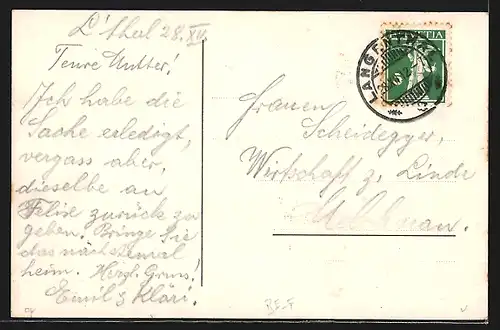 L'thal 28. XII.
Teure Mutter!
Ich habe die
Sache erledigt,
vergass aber,
dieselbe an
Felix zurück zu
geben. Bringe sie
das nächstemal
heim. Herzl. Gruss!
Emil & Kläri.
HELVETIA
LANGENTHAL
Frauen
Scheidegger,
Wirtschaft z. Linde
Melchnau.